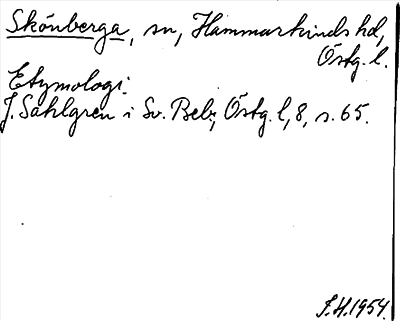 Skönberga, sn, Hammarkinds hd,
Östg. l.
Etymologi.
J. Sahlgren i Sv. Beb., Östg. l, 8, s. 65.
J.H.1954.